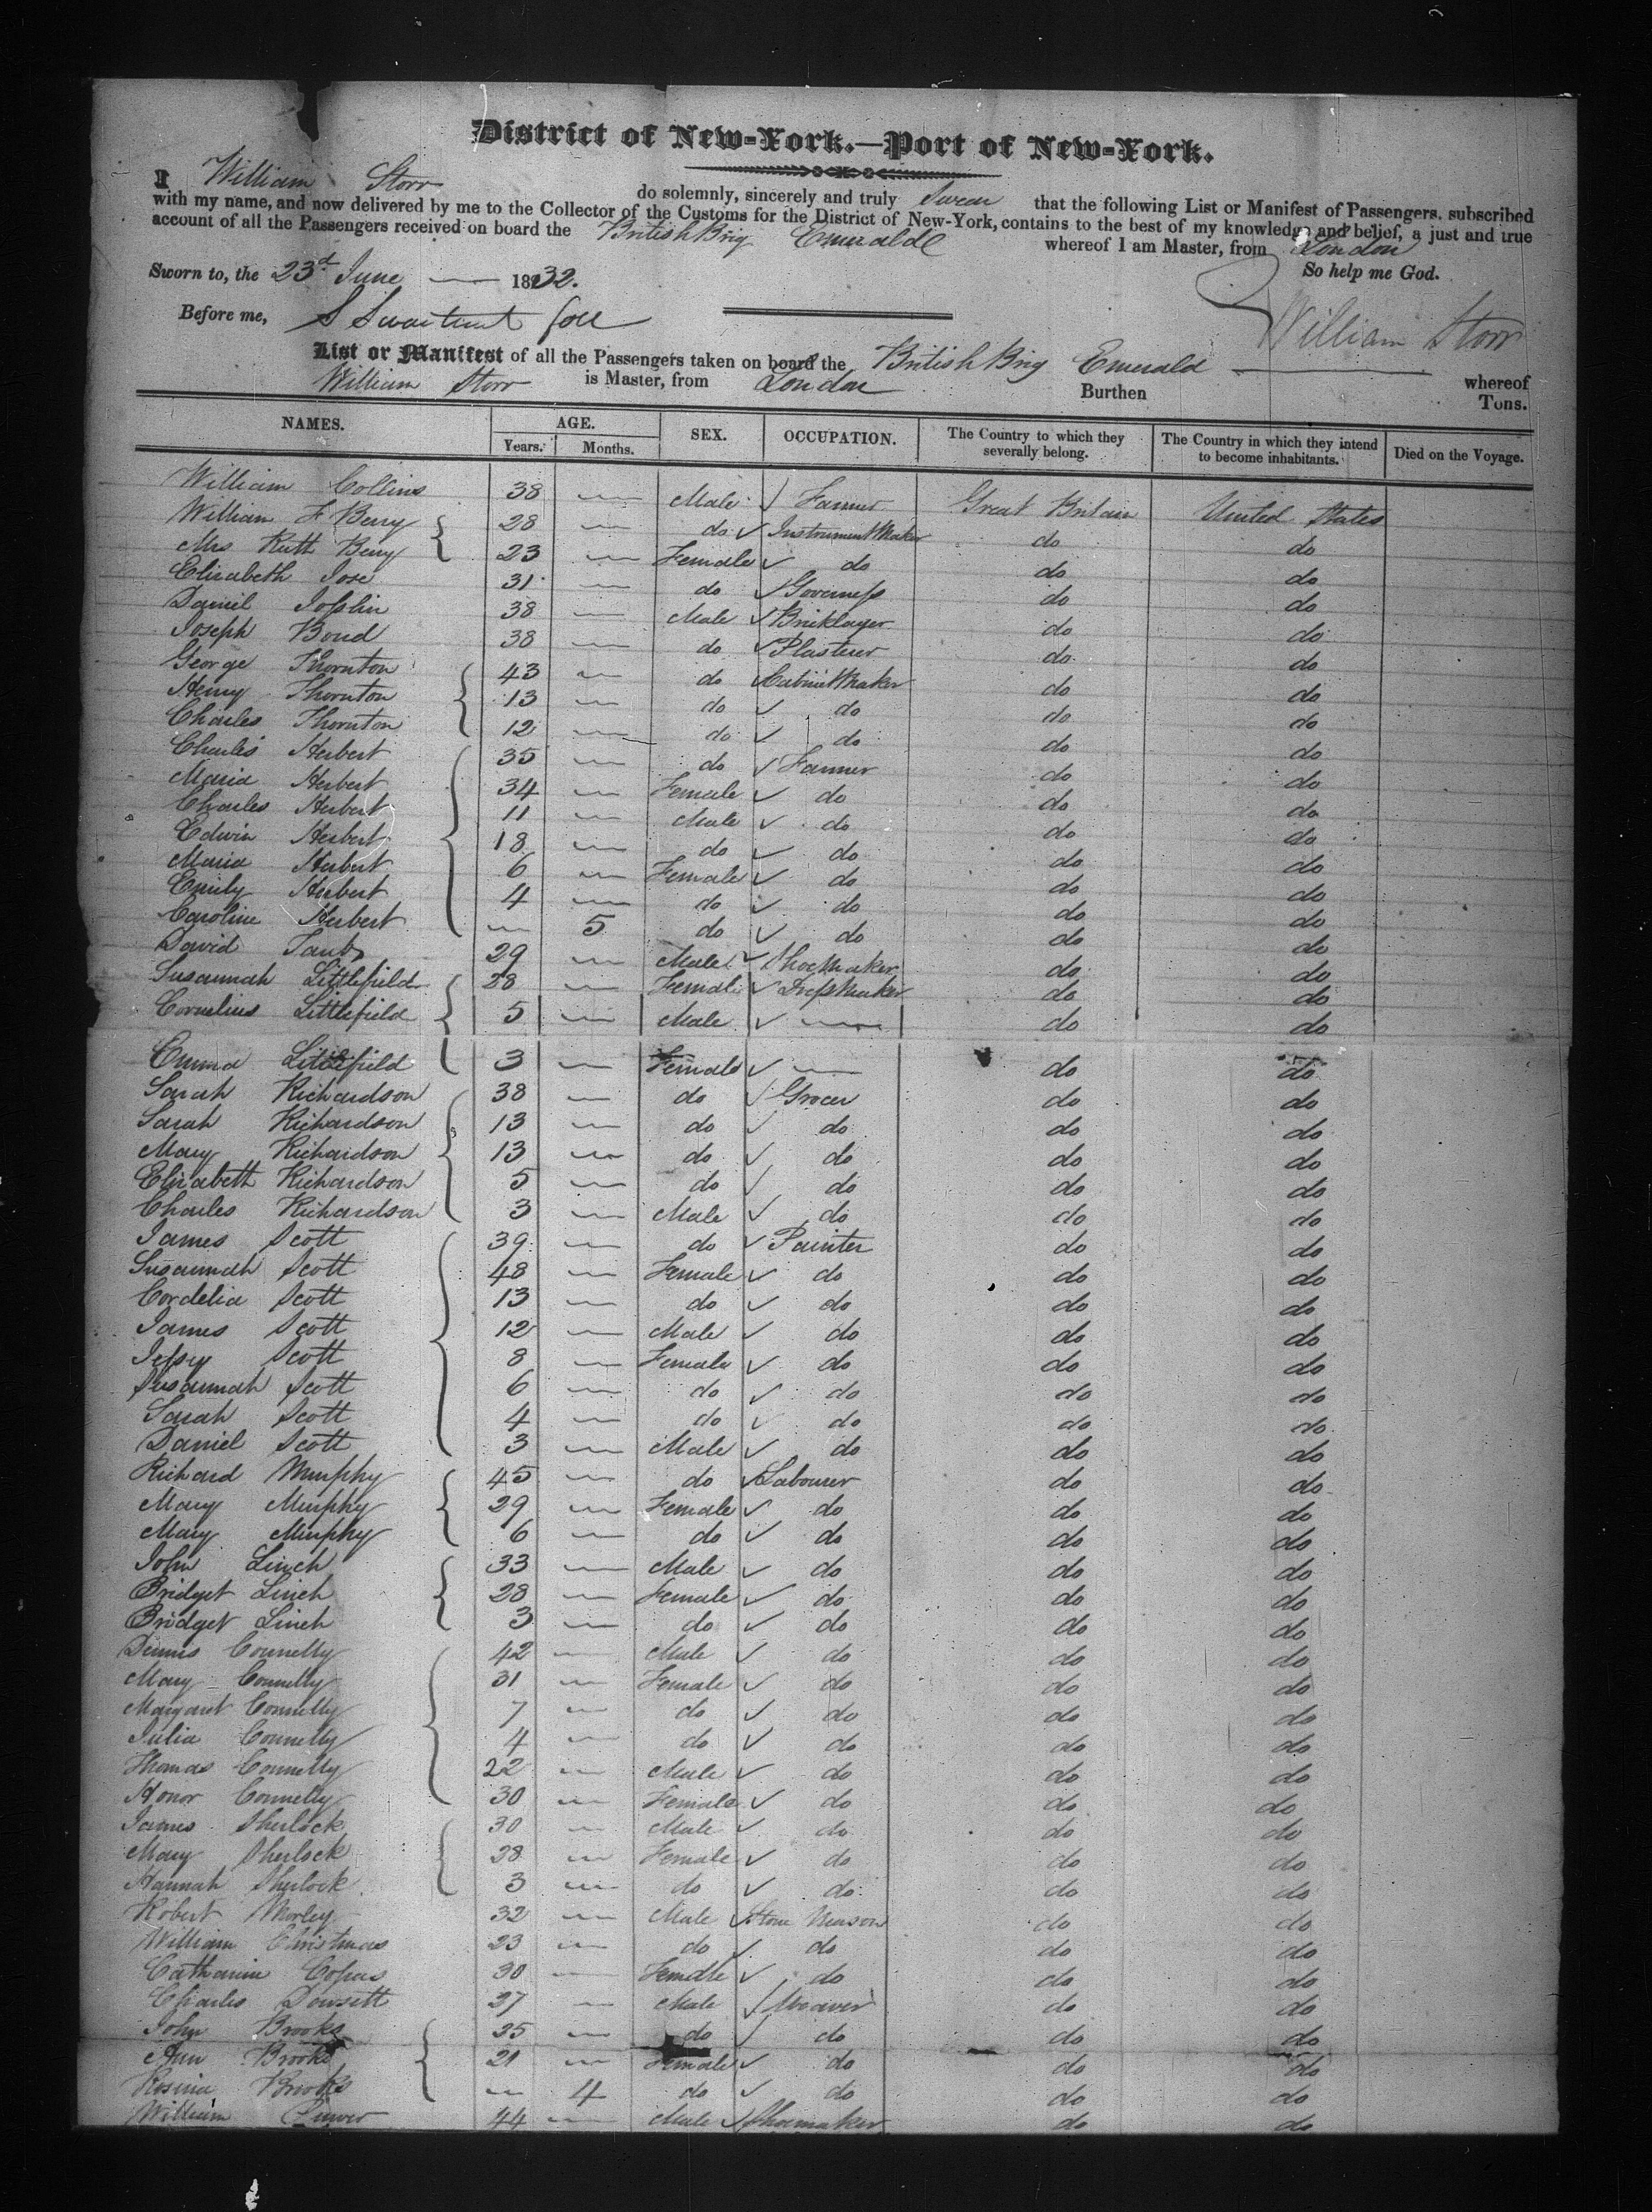 District of New-York.—Port of New-York.
I William Storr do solemnly, sincerely and truly Swear that the following List or Manifest of Passengers, subscribed
with my name, and now delivered by me to the Collector of the Customs for the District of New-York, contains to the best of my knowledge and belief, a just and true
account of all the Passengers received on board the British Brig Emerald whereof I am Master, from London
Sworn to, the 23d June 1832. So help me God.
Before me, S Swartwout Coll William Storr
List or Manifest of all the Passengers taken on board the British Brig Emerald whereof
William Storr is Master, from London Burthen Tons.
NAMES. AGE. Years. Months. SEX. OCCUPATION. The Country to which they severally belong. The Country in which they intend to become inhabitants. Died on the Voyage.
William Collins 38 — Male Farmer Great Britain United States
William F Berry 28 — do Instrument Maker do do
Mrs Ruth Berry 23 — Female do do do
Elizabeth Jose 31 — do Governess do do
Daniel Joslin 38 — Male Bricklayer do do
Joseph Bond 38 — do Plasterer do do
George Thornton 43 — do Cabinet Maker do do
Henry Thornton 13 — do do do do
Charles Thornton 12 — do do do do
Charles Herbert 35 — do Farmer do do
Maria Herbert 34 — Female do do do
Charles Herbert 11 — Male do do do
Edwin Herbert 18 — do do do do
Maria Herbert 6 — Female do do do
Emily Herbert 4 — do do do do
Caroline Herbert — 5 do do do do
David 29 — Male Shoe Maker do do
Susannah Littlefield 28 — Female Dress Maker do do
Cornelius Littlefield 5 — Male — do do
Emma Littlefield 3 — Female — do do
Sarah Richardson 38 — do Grocer do do
Sarah Richardson 13 — do do do do
Mary Richardson 13 — do do do do
Elizabeth Richardson 5 — do do do do
Charles Richardson 3 — Male do do do
James Scott 39 — do Painter do do
Susannah Scott 48 — Female do do do
Cordelia Scott 13 — do do do do
James Scott 12 — Male do do do
Jessy Scott 8 — Female do do do
Susannah Scott 6 — do do do do
Sarah Scott 4 — do do do do
Daniel Scott 3 — Male do do do
Richard Murphy 45 — do Labourer do do
Mary Murphy 29 — Female do do do
Mary Murphy 6 — do do do do
John Linch 33 — Male do do do
Bridget Linch 28 — Female do do do
Bridget Linch 3 — do do do do
Dennis Connelly 42 — Male do do do
Mary Connelly 31 — Female do do do
Margaret Connelly 7 — do do do do
Julia Connelly 4 — do do do do
Thomas Connelly 22 — Male do do do
Honor Connelly 30 — Female do do do
James Sherlock 30 — Male do do do
Mary Sherlock 28 — Female do do do
Hannah Sherlock 3 — do do do do
Robert Morley 32 — Male Stone Mason do do
William Christmas 23 — do do do do
Catharine Copas 30 — Female do do do
Charles Dowsett 27 — Male Weaver do do
John Brooks 35 — do do do do
Ann Brooks 21 — Female do do do
Rosina Brooks — 4 do do do do
William 44 — Male Shoemaker do do